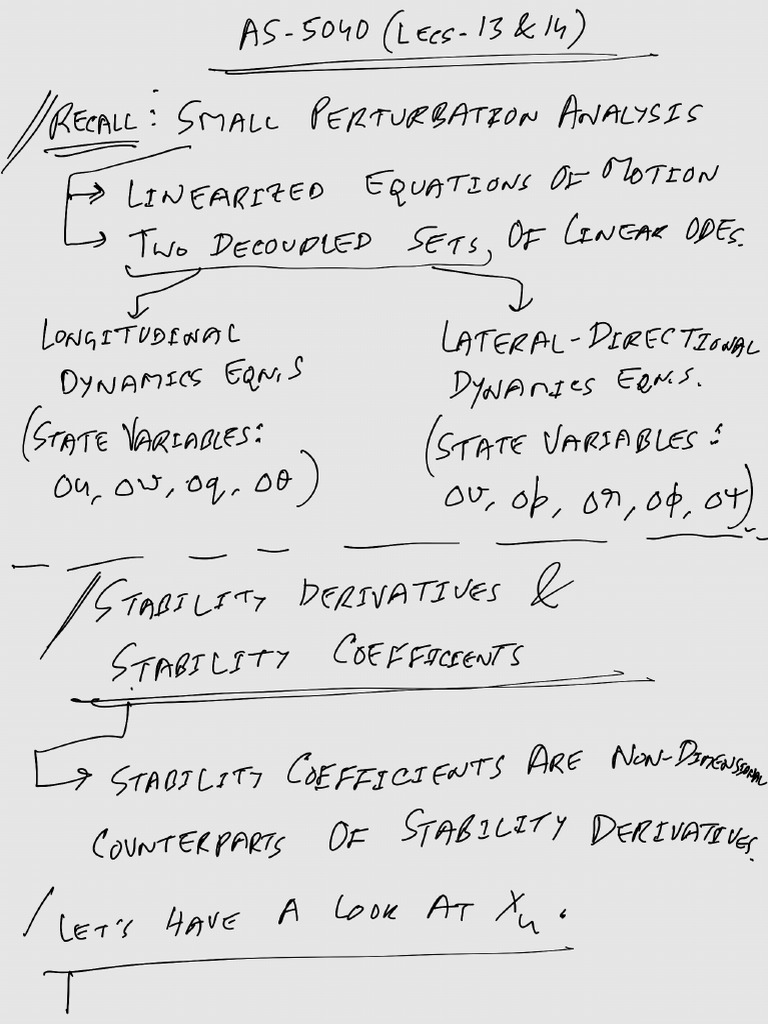 AS-5040 (LECS-13 & 14)
RECALL: SMALL PERTURBATION ANALYSIS
→ LINEARIZED EQUATIONS OF MOTION
→ TWO DECOUPLED SETS, OF LINEAR ODES.
LONGITUDINAL
DYNAMICS EQN.S
(STATE VARIABLES:
Δu, Δw, Δq, Δθ)
LATERAL-DIRECTIONAL
DYNAMICS EQN.S.
(STATE VARIABLES:
Δv, Δp, Δr, Δϕ, Δψ)
STABILITY DERIVATIVES &
STABILITY COEFFICIENTS
→ STABILITY COEFFICIENTS ARE NON-DIMENSIONAL
COUNTERPARTS OF STABILITY DERIVATIVES.
LET'S HAVE A LOOK AT Xu.